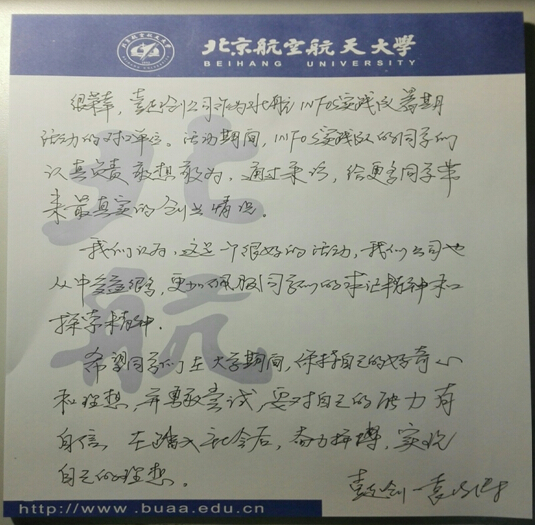 北京航空航天大学
BEIHANG UNIVERSITY
很荣幸，创公司作为北航INFO实践队暑期
活动的对口单位。活动期间，INFO实践队的同学们
认真负责敢想敢为，通过采访，给更多同学带
来最真实的创业情况。
我们认为，这是一个很好的活动，我们公司也
从中受益很多，更加佩服同学们的求证精神和
探索精神。
希望同学们在大学期间，保持自己的好奇心
和理想，并勇敢尝试，要对自己的能力有
自信，在踏入社会后，奋力拼搏，实现
自己的理想。
北航
http://www.buaa.edu.cn